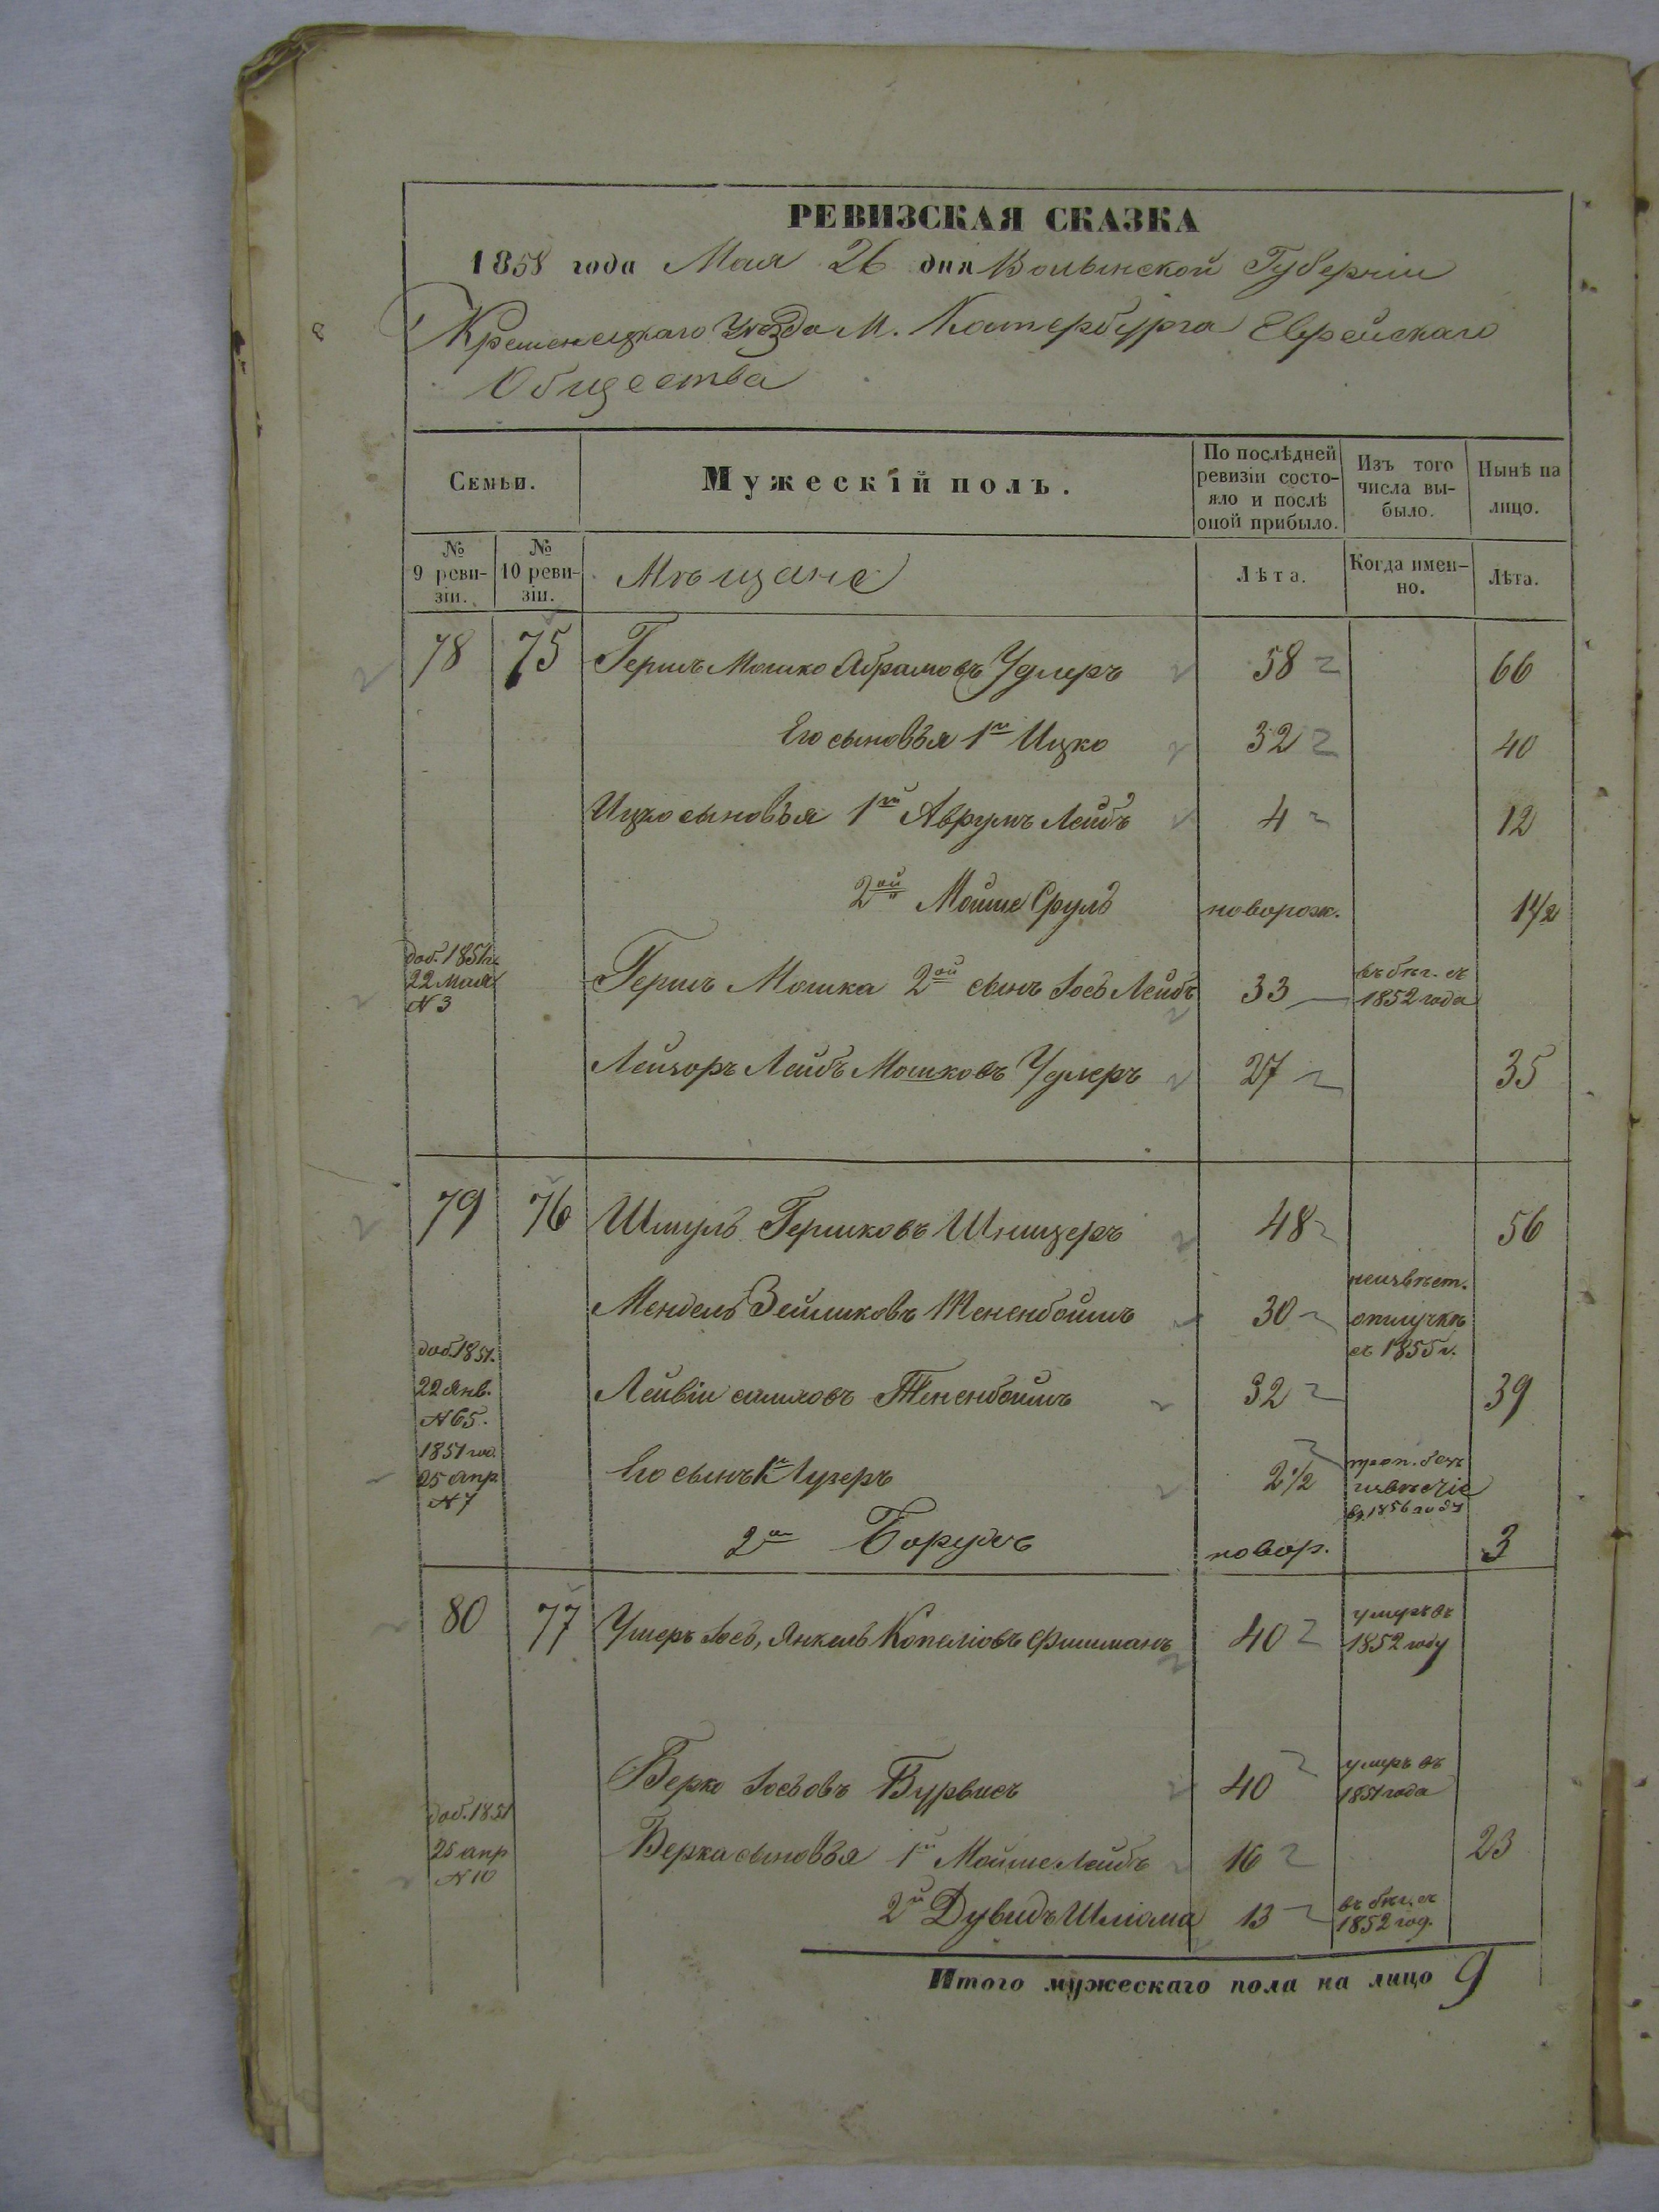 РЕВИЗСКАЯ СКАЗКА
1858 года Мая 26 дня Волынской Губерніи
Кременецкаго Уѣзда М. Катербурга Еврейскаго
Общества
Семьи. Мужескій полъ. По послѣдней ревизіи состояло и послѣ оной прибыло. Изъ того числа выбыло. Нынѣ на лицо.
№ 9 ревизіи. № 10 ревизіи. Мѣщане Лѣта. Когда именно. Лѣта.
78 75 Гершъ Мошко Абрамовъ Удлеръ 58 66
Его сыновья 1й Ицко 32 40
Ицко сыновья 1й Аврумъ Лейбъ 4 12
2ой Мойше Сруль новорож. 1 1/2
доб. 1851 г.
22 мая
№ 3
Гершъ Мошка 2ой сынъ Іосъ Лейбъ 33 въ бѣг. съ 1852 года
Лейзоръ Лейбъ Мошковъ Удлеръ 27 35
79 76 Шмуль Гершковъ Шницеръ 48 56
Мендель Зейликовъ Тененбоймъ 30 неизвѣст. отлучкѣ съ 1855 г.
доб. 1851.
22 Янв.
№ 65.
Тененбоймъ 32 39
1851 год.
25 апр.
№ 7
Его сынъ 1й 2 1/2 въ 1856 году
2й Борухъ новор. 3
80 77 Ушеръ Іосъ, Янкель Копеліовъ Фишманъ 40 умеръ въ 1852 году
Берко Іосьовъ Бурвисъ 40 умеръ въ 1851 года
доб. 1851
25 апр
№ 10
Берка сыновья 1й Мойше Лейбъ 16 23
2й Дувидъ Шліома 13 въ бѣг. съ 1852 год.
Итого мужескаго пола на лицо 9